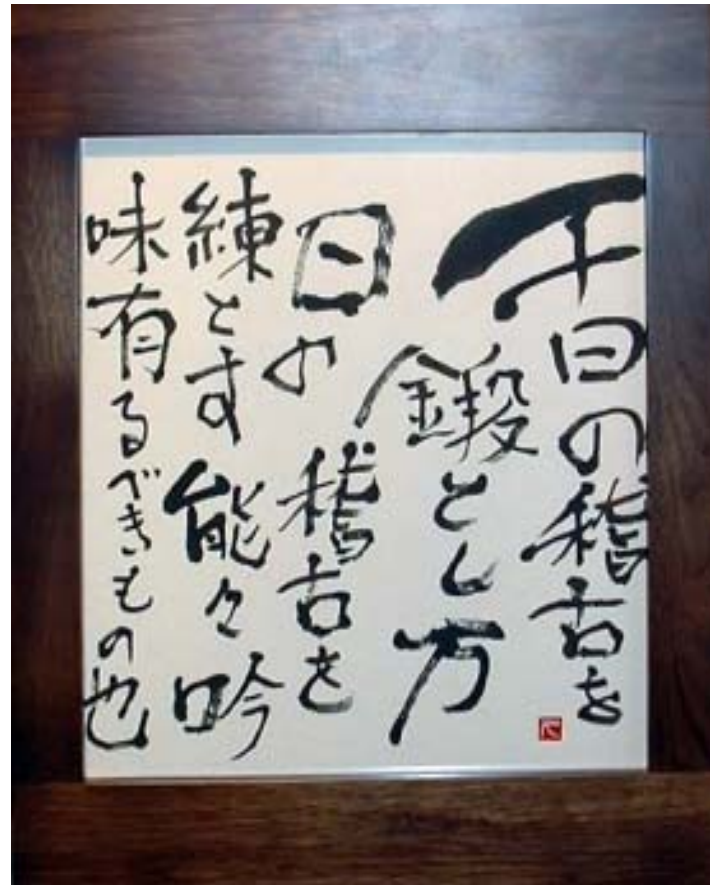 千日の稽古を
鍛とし万
日の稽古を
練とす能々吟
味有るべきもの也